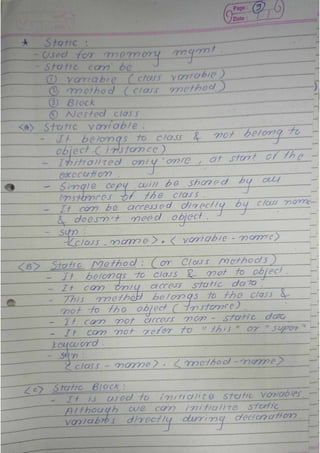 Page: 9
Date:
* Static :
- Used for memory mgmt.
- Static can be
① variable (class variable)
② method (class method)
③ Block
④ Nested class
<A> Static variable :
- It belongs to class & not belong to
object (instance)
- Initialized only once, at start of the
execution.
- Single copy will be shared by all
instances of the class
- It can be accessed directly by class name
& doesn't need object.
- Syn :
<class_name>.<variable-name>
<B> Static Method : (or Class Methods)
- It belongs to class & not to object.
- It can only access static data.
- This method belongs to the class &
not to the object (instance)
- It can not access non-static data
- It can not refer to "this" or "super"
keyword.
- Syn
<class-name>.<method-name>
<C> Static Block :
- It is used to initialize static variables
Although we can initialize static
variables directly during declaration